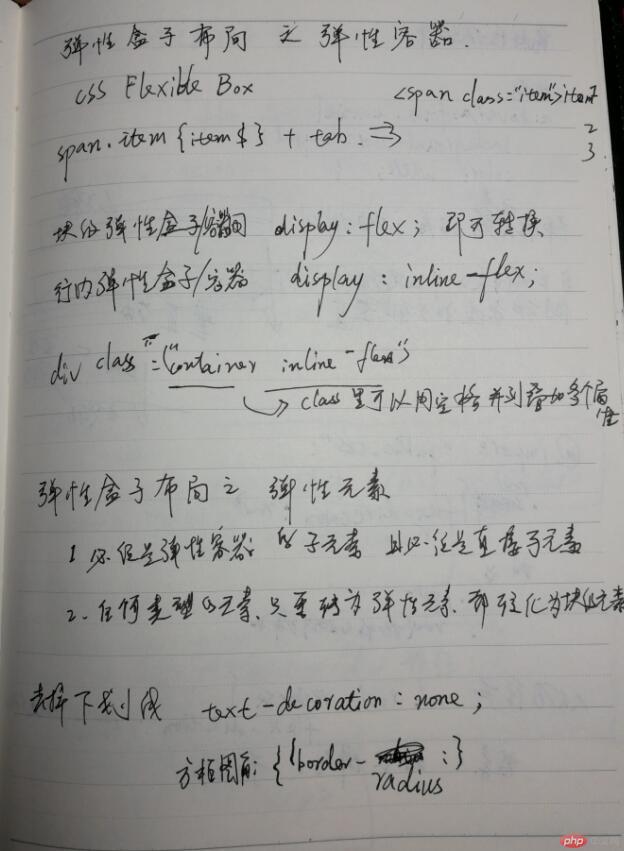 弹性盒子布局之弹性容器.
css Flexible Box <span class="item">item1
2
span.item{item$} + tab. => 3.
块级弹性盒子/容器 display: flex; 即可转换
行内弹性盒子/容器 display: inline-flex;
div class = ("container inline-flex")
class里可以用空格并列叠加多个属性
弹性盒子布局之 弹性元素
1 必须是弹性容器 的子元素 且必须是直接子元素
2. 任何类型的元素、只要转为弹性元素、都
为块级元素
去掉下划线 text-decoration: none;
方框圆角: { border-radius : }
php